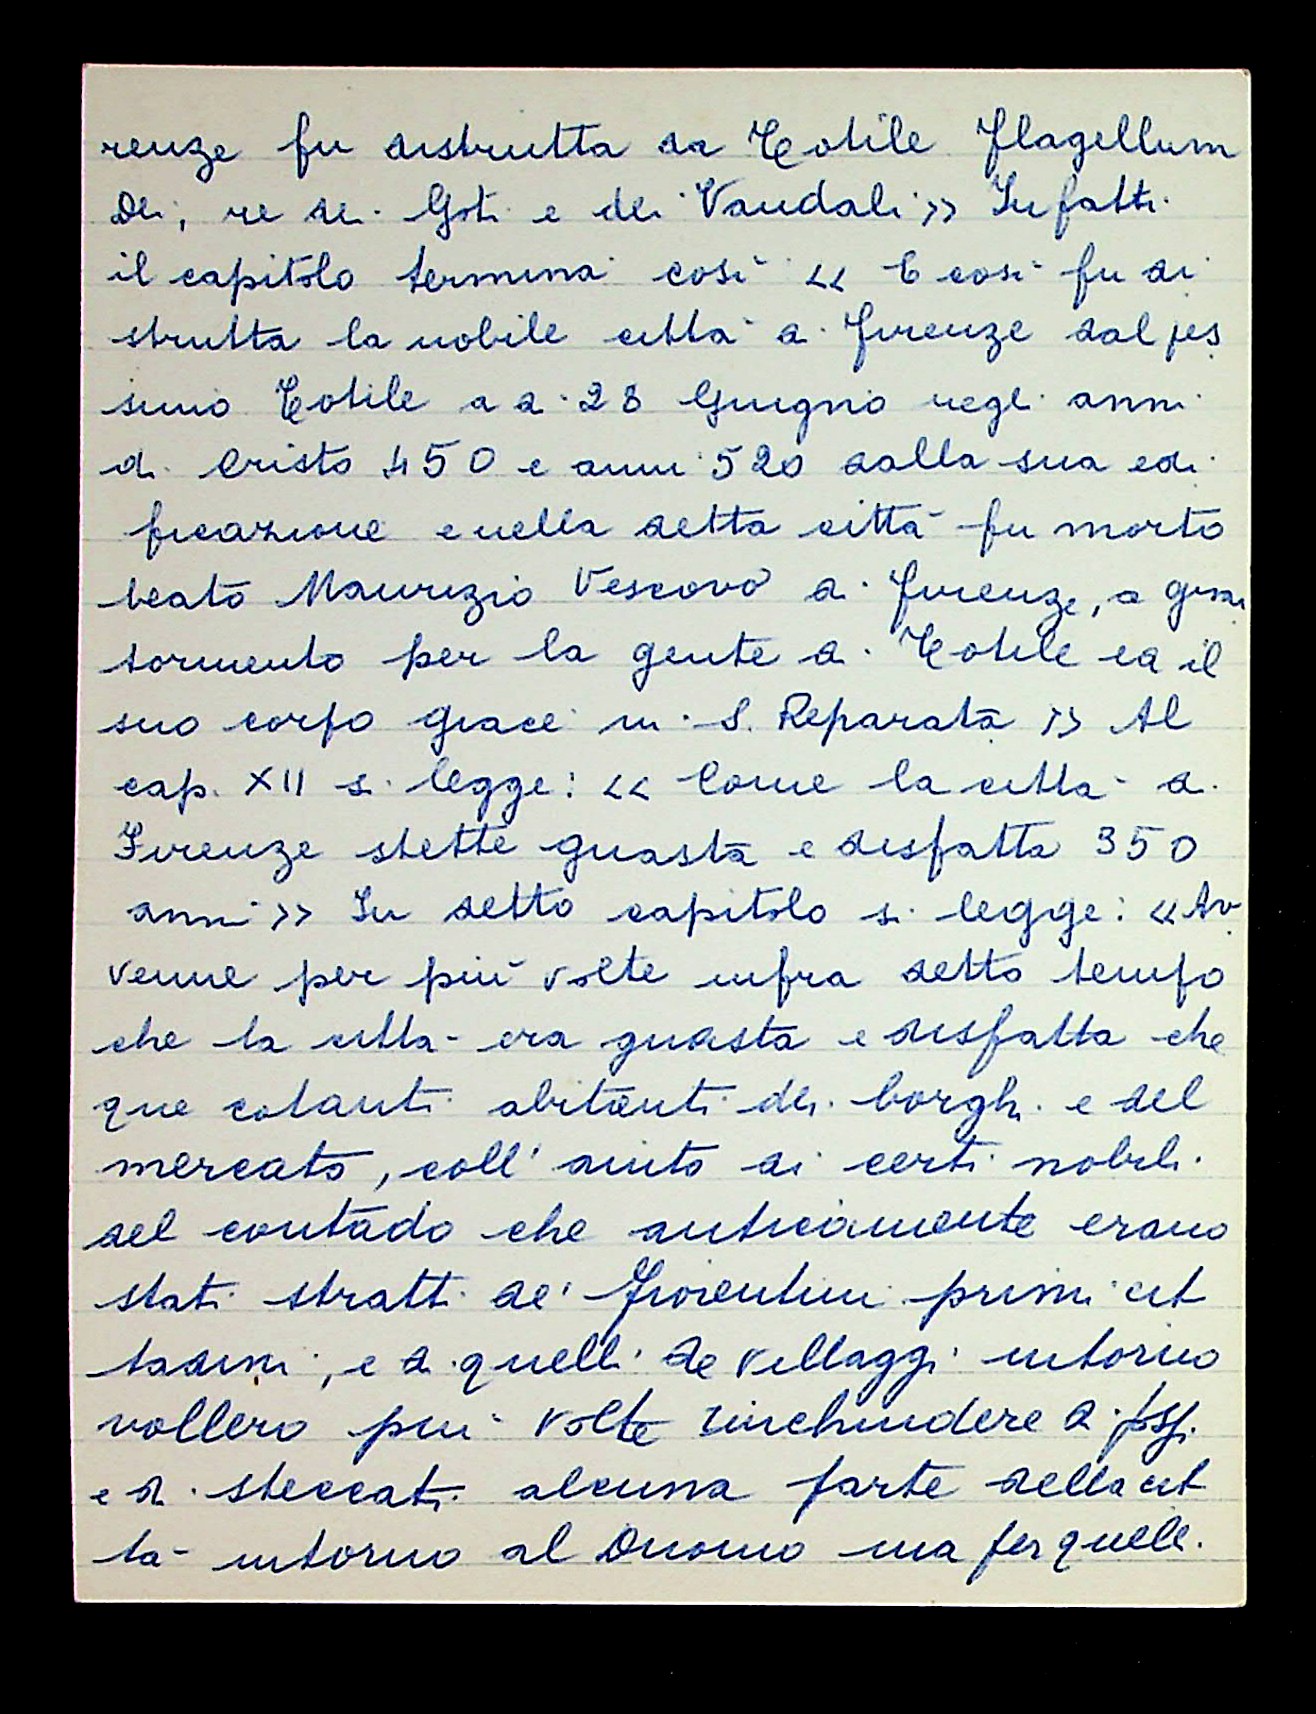 renze fu distrutta da Totile Flagellum
Dei, re dei Goti e dei Vandali >> Infatti
il capitolo termina così << E così fu di
strutta la nobile città di Firenze dal pes
simo Totile a dì 28 Giugno negli anni
di Cristo 450 e anni 520 dalla sua edi
ficazione e nella detta città fu morto
beato Maurizio Vescovo di Firenze, a gran
tormento per la gente di Totile ed il
suo corpo giace in S. Reparata >> Al
cap. XII si legge: << Come la città di
Firenze stette guasta e disfatta 350
anni >> In detto capitolo si legge: << Av
venne per più volte infra detto tempo
che la città era guasta e disfatta che
que cotanti abitanti dei borghi e del
mercato, coll' aiuto di certi nobili
del contado che anticamente erano
stati stratti de' Fiorentini primi cit
tadini, e di quelli de villaggi intorno
vollero più volte rinchiudere di fossi
e di steccati alcuna parte della cit
tà intorno al Duomo ma per quelli